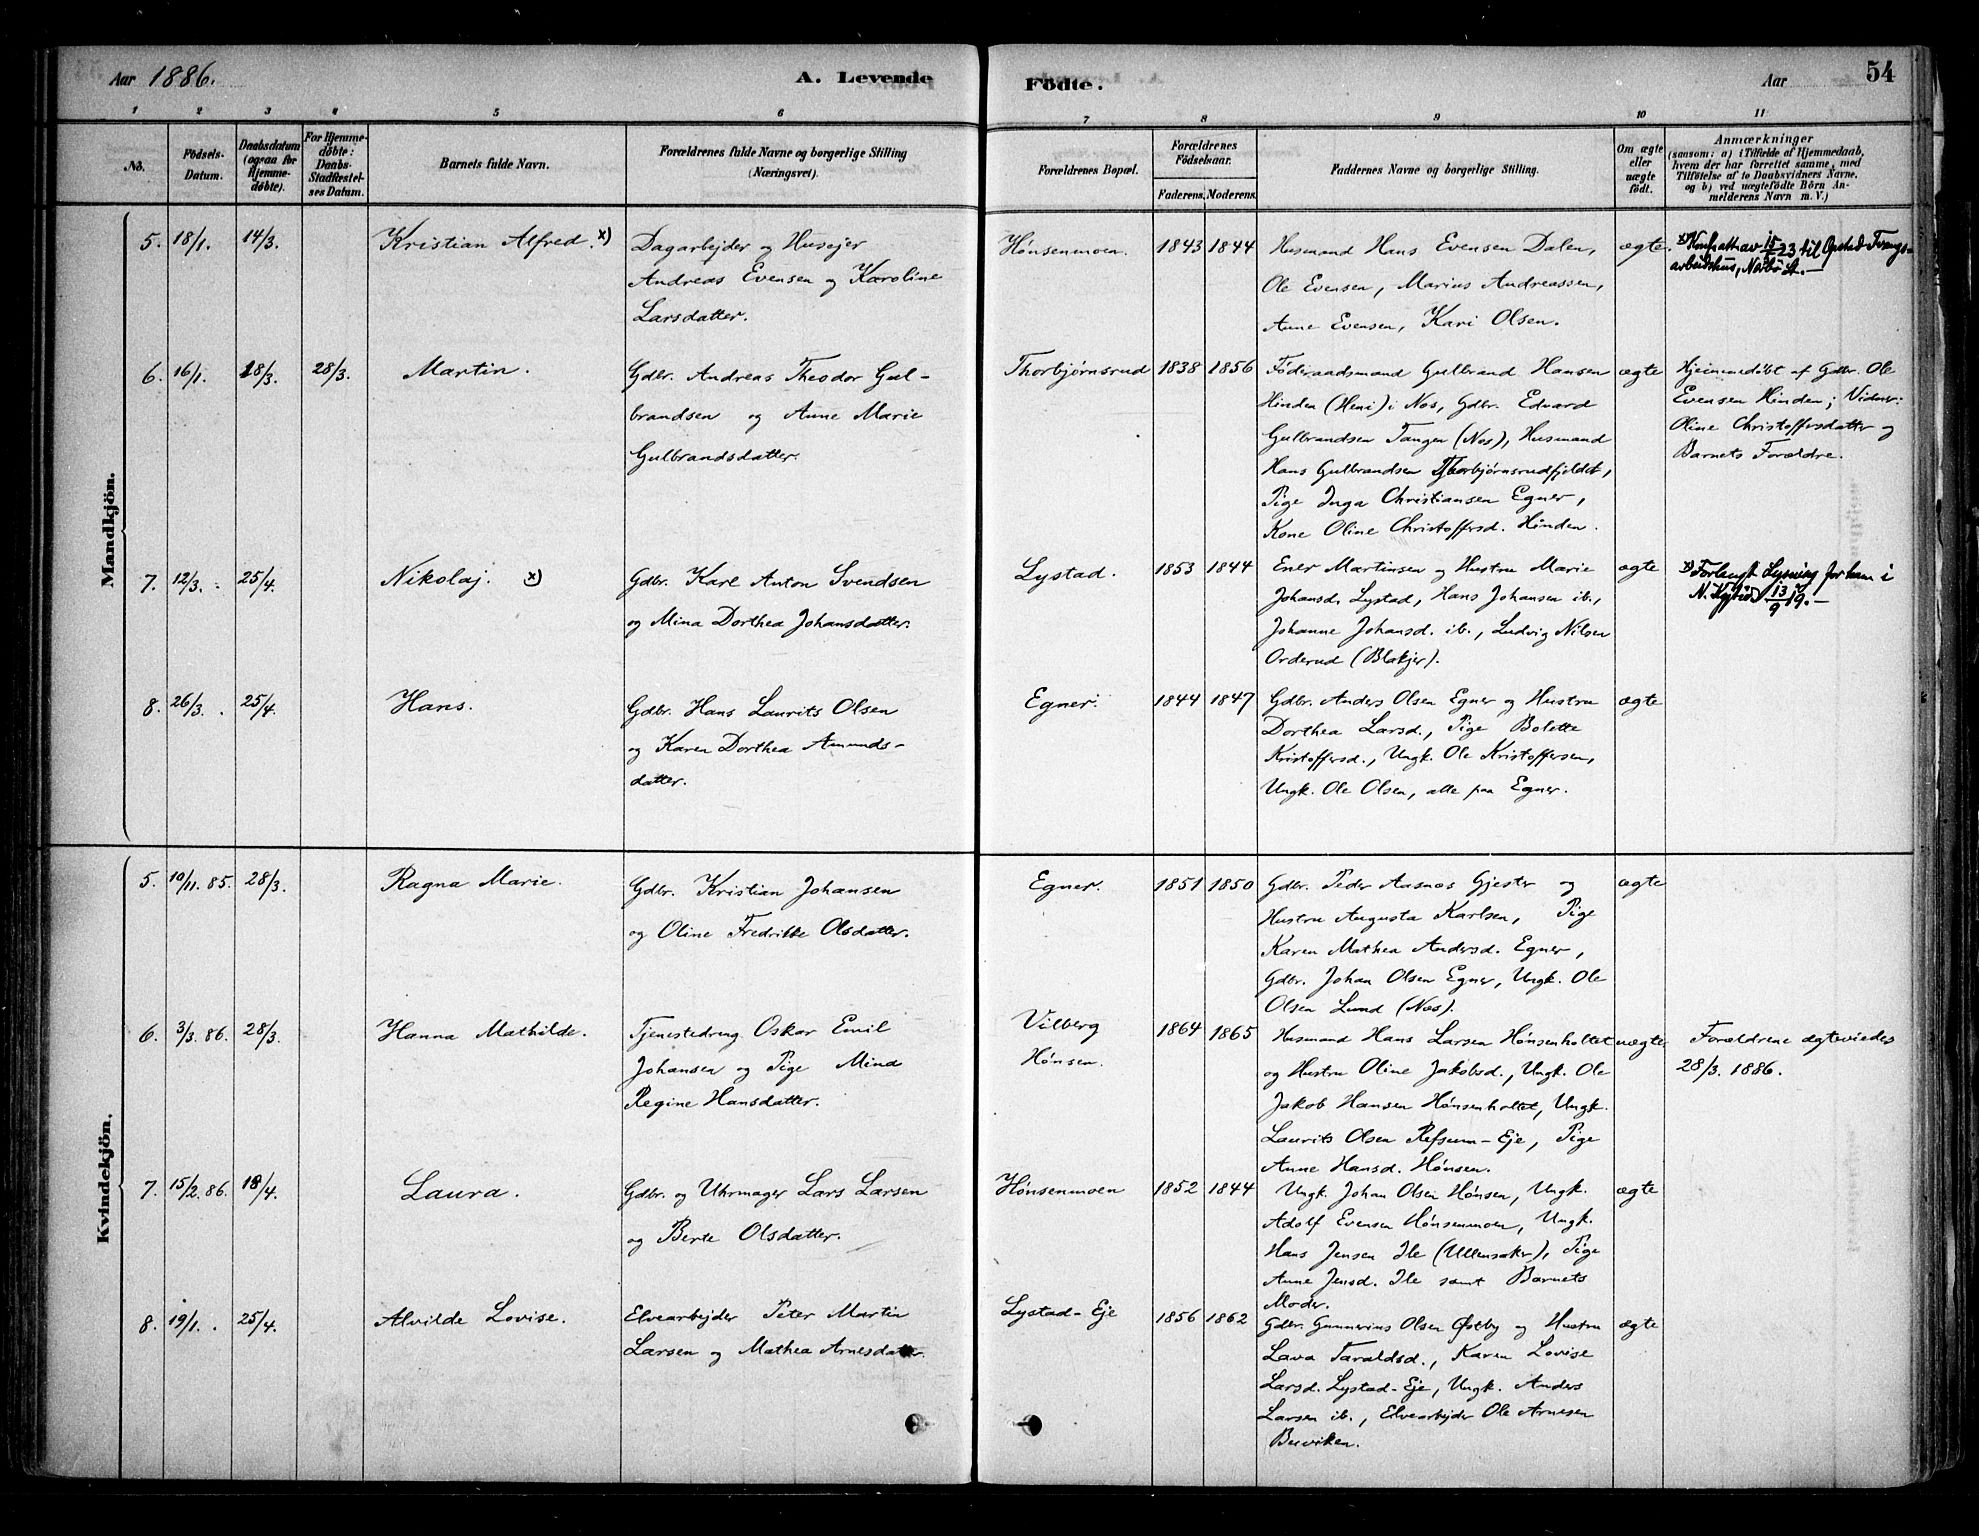 Aar 1886.
A. Levende
Födte.
Aar
54
1 2 3 4 5 6 7 8 9 10 11
No.
Födsels-
Datum.
Daabsdatum
(ogsaa for
Hjemme-
döbte).
For Hjemme-
döbte:
Daabs-
Stadfæstel-
ses Datum.
Barnets fulde Navn.
Forældrenes fulde Navne og borgerlige Stilling
(Næringsvei).
Forældrenes Bopæl.
Forældrenes
Födselsaar.
Faderens. Moderens.
Faddernes Navne og borgerlige Stilling.
Om ægte
eller
uægte
födt.
Anmærkninger
(saasom: a) i Tilfælde af Hjemmedaab,
hvem der har forrettet samme, med
Tilföielse af to Daabsvidners Navne,
og b) ved uægtefödte Börn An-
melderens Navn m. V.)
Mandkjön.
5. 18/1. 14/3.
Kristian Alfred. x)
Dagarbejder og Husejer
Andreas Evensen og Karoline
Larsdatter.
Hønsenmoen.
1843 1844
Husmand Hans Evensen Dalen,
Ole Evensen, Marius Andreassen,
Anne Evensen, Kari Olsen.
ægte.
x) av 15/3 23 til Opstad Tvangs-
arbeidshus, Nærbø St. —
6. 16/1. 28/3. 28/3.
Martin.
Gdbr. Andreas Theodor Gul-
brandsen og Anne Marie
Gulbrandsdatter.
Thorbjørnsrud
1838 1856
Føderaadsmand Gulbrand Hansen
Hinden (Heni) i Næs, Gdbr. Edvard
Gulbrandsen Tangen (Næs), Husmand
Hans Gulbrandsen Thorbjørnsrudfjeldet,
Pige Inga Christiansen Egner,
Kone Oline Christoffersd. Hinden.
ægte
Hjemmedøbt af Gdbr. Ole
Evensen Hinden; Vidner:
Oline Christoffersdatter og
Barnets Forældre.
7. 12/3. 25/4.
Nikolaj. x)
Gdbr. Karl Anton Svendsen
og Mina Dorthea Johansdatter.
Lystad.
1853 1844
Ener Martinsen og Hustru Marie
Johansd. Lystad, Hans Johansen ib.,
Johanne Johansd. ib., Ludvig Nilsen
Orderud (Blakjer).
ægte
x) Forlangt Lysning for ham i
N. 13/9 19. —
8. 26/3. 25/4.
Hans.
Gdbr. Hans Laurits Olsen
og Karen Dorthea Amunds-
datter.
Egner.
1844 1847
Gdbr. Anders Olsen Egner og Hustru
Dorthea Larsd., Pige Bolette
Kristoffersd., Ungk. Ole Kristoffersen,
Ungk. Ole Olsen, alle paa Egner.
ægte
Kvindekjön.
5. 10/11. 85. 28/3.
Ragna Marie.
Gdbr. Kristian Johansen
og Oline Fredrikke Olsdatter.
Egner.
1851 1850
Gdbr. Peder Aasnæs Gjester og
Hustru Augusta Karlsen, Pige
Karen Mathea Andersd. Egner,
Gdbr. Johan Olsen Egner, Ungk. Ole
Olsen Lund (Næs).
ægte
6. 3/3. 86. 28/3.
Hanna Mathilde.
Tjenestedreng Oskar Emil
Johansen og Pige Mina
Regine Hansdatter.
Vilberg
Hønsen.
1864 1865
Husmand Hans Larsen Hønsenholtet
og Hustru Oline Jakobsd., Ungk. Ole
Jakob Hansen Hønsenholtet, Ungk.
Laurits Olsen Refsum-Eje, Pige
Anne Hansd. Hønsen.
uægte
Forældrene ægteviedes
28/3. 1886.
7. 15/2. 86. 18/4.
Laura.
Gdbr. og Uhrmager Lars Larsen
og Berte Olsdatter.
Hønsenmoen
1852 1844
Ungk. Johan Olsen Hønsen, Ungk.
Adolf Evensen Hønsenmoen, Ungk.
Hans Jensen Ile (Ullensaker), Pige
Anne Jensd. Ile samt Barnets
Moder.
ægte
8. 19/1. 25/4.
Alvilde Lovise.
Elvearbejder Peter Martin
Larsen og Mathea Arnesdatter.
Lystad-Eje
1856 1862
Gdbr. Gunnerius Olsen Østby og Hustru
Lava Taraldsd., Karen Lovise
Larsd. Lystad-Eje, Ungk. Anders
Larsen ib., Elvearbejder Ole Arnesen
Busviken.
ægte